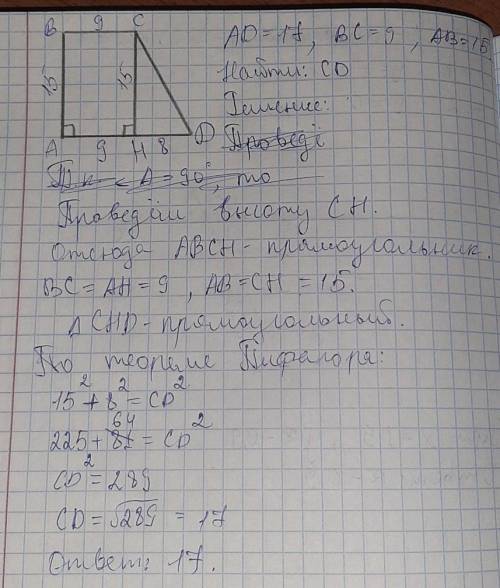 B 9 C
AD=17, BC=9, AB=15
15 15
Найти: CD
Решение:
A 9 H 8 D
Проведё
Т.к < A=90°, то
Проведём высоту CH.
Отсюда ABCH - прямоугольник.
BC = AH = 9, AB = CH = 15.
△ CHD - прямоугольный.
По теореме Пифагора:
15² + 8² = CD²
64
225 + 81 = CD²
CD² = 289
CD = √289 = 17
Ответ: 17.